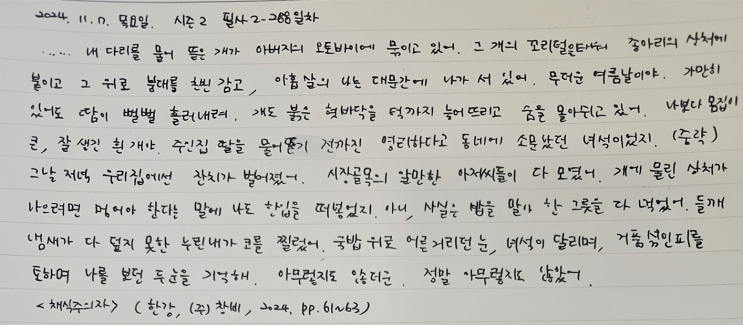 2024. 11. 7. 목요일. 시즌 2 필사 2-288일차
...... 내 다리를 물어 뜯은 개가 아버지의 오토바이에 묶이고 있어. 그 개의 꼬리털을 태워 종아리의 상처에
붙이고 그 위로 붕대를 친친 감고, 아홉살의 나는 대문간에 나가 서 있어. 무더운 여름날이야. 가만히
있어도 땀이 뻘뻘 흘러내려. 개도 붉은 혓바닥을 턱까지 늘어뜨리고 숨을 몰아쉬고 있어. 나보다 몸집이
큰, 잘 생긴 흰 개야. 주인집 딸을 물어뜯기 전까진 영리하다고 동네에 소문났던 녀석이었지. (중략)
그날 저녁 우리집에선 잔치가 벌어졌어. 시장골목의 알만한 아저씨들이 다 모였어. 개에 물린 상처가
나으려면 먹어야 한다는 말에 나도 한입을 떠넣었지. 아니, 사실은 밥을 말아 한 그릇을 다 먹었어. 들깨
냄새가 다 덮지 못한 누린내가 코를 찔렀어. 국밥 위로 어른거리던 눈, 녀석이 달리며, 거품 섞인 피를
토하며 나를 보던 두 눈을 기억해. 아무렇지도 않더군. 정말 아무렇지도 않았어.
<채식주의자> (한강, (주) 창비, 2024. pp. 61~63)